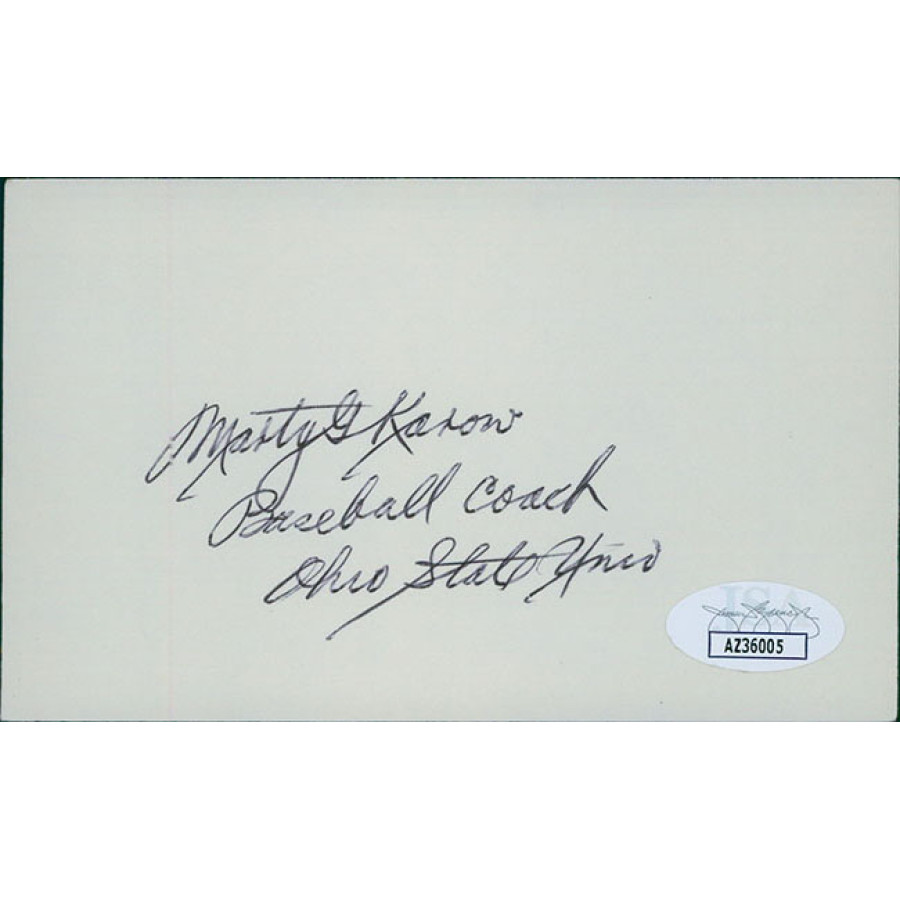 Marty G Karow
Baseball Coach
Ohio State Univ
JSA
AZ36005